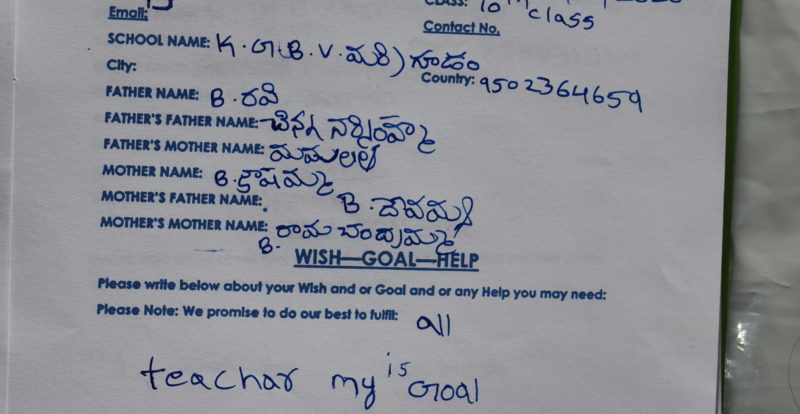 CLASS: 10th class
Email:
Contact No.
SCHOOL NAME: K. G. B. V. మరిగూడెం
City:
Country: 9502364659
FATHER NAME: B. రవి
FATHER'S FATHER NAME: చిన్న నర్సింహ్మ
FATHER'S MOTHER NAME:
MOTHER NAME: B.
MOTHER'S FATHER NAME: B. దేవమ్మ
MOTHER'S MOTHER NAME: B. రామ చంద్రమ్మ
WISH—GOAL—HELP
Please write below about your Wish and or Goal and or any Help you may need:
Please Note: We promise to do our best to fulfil: all
teachar my is Goal